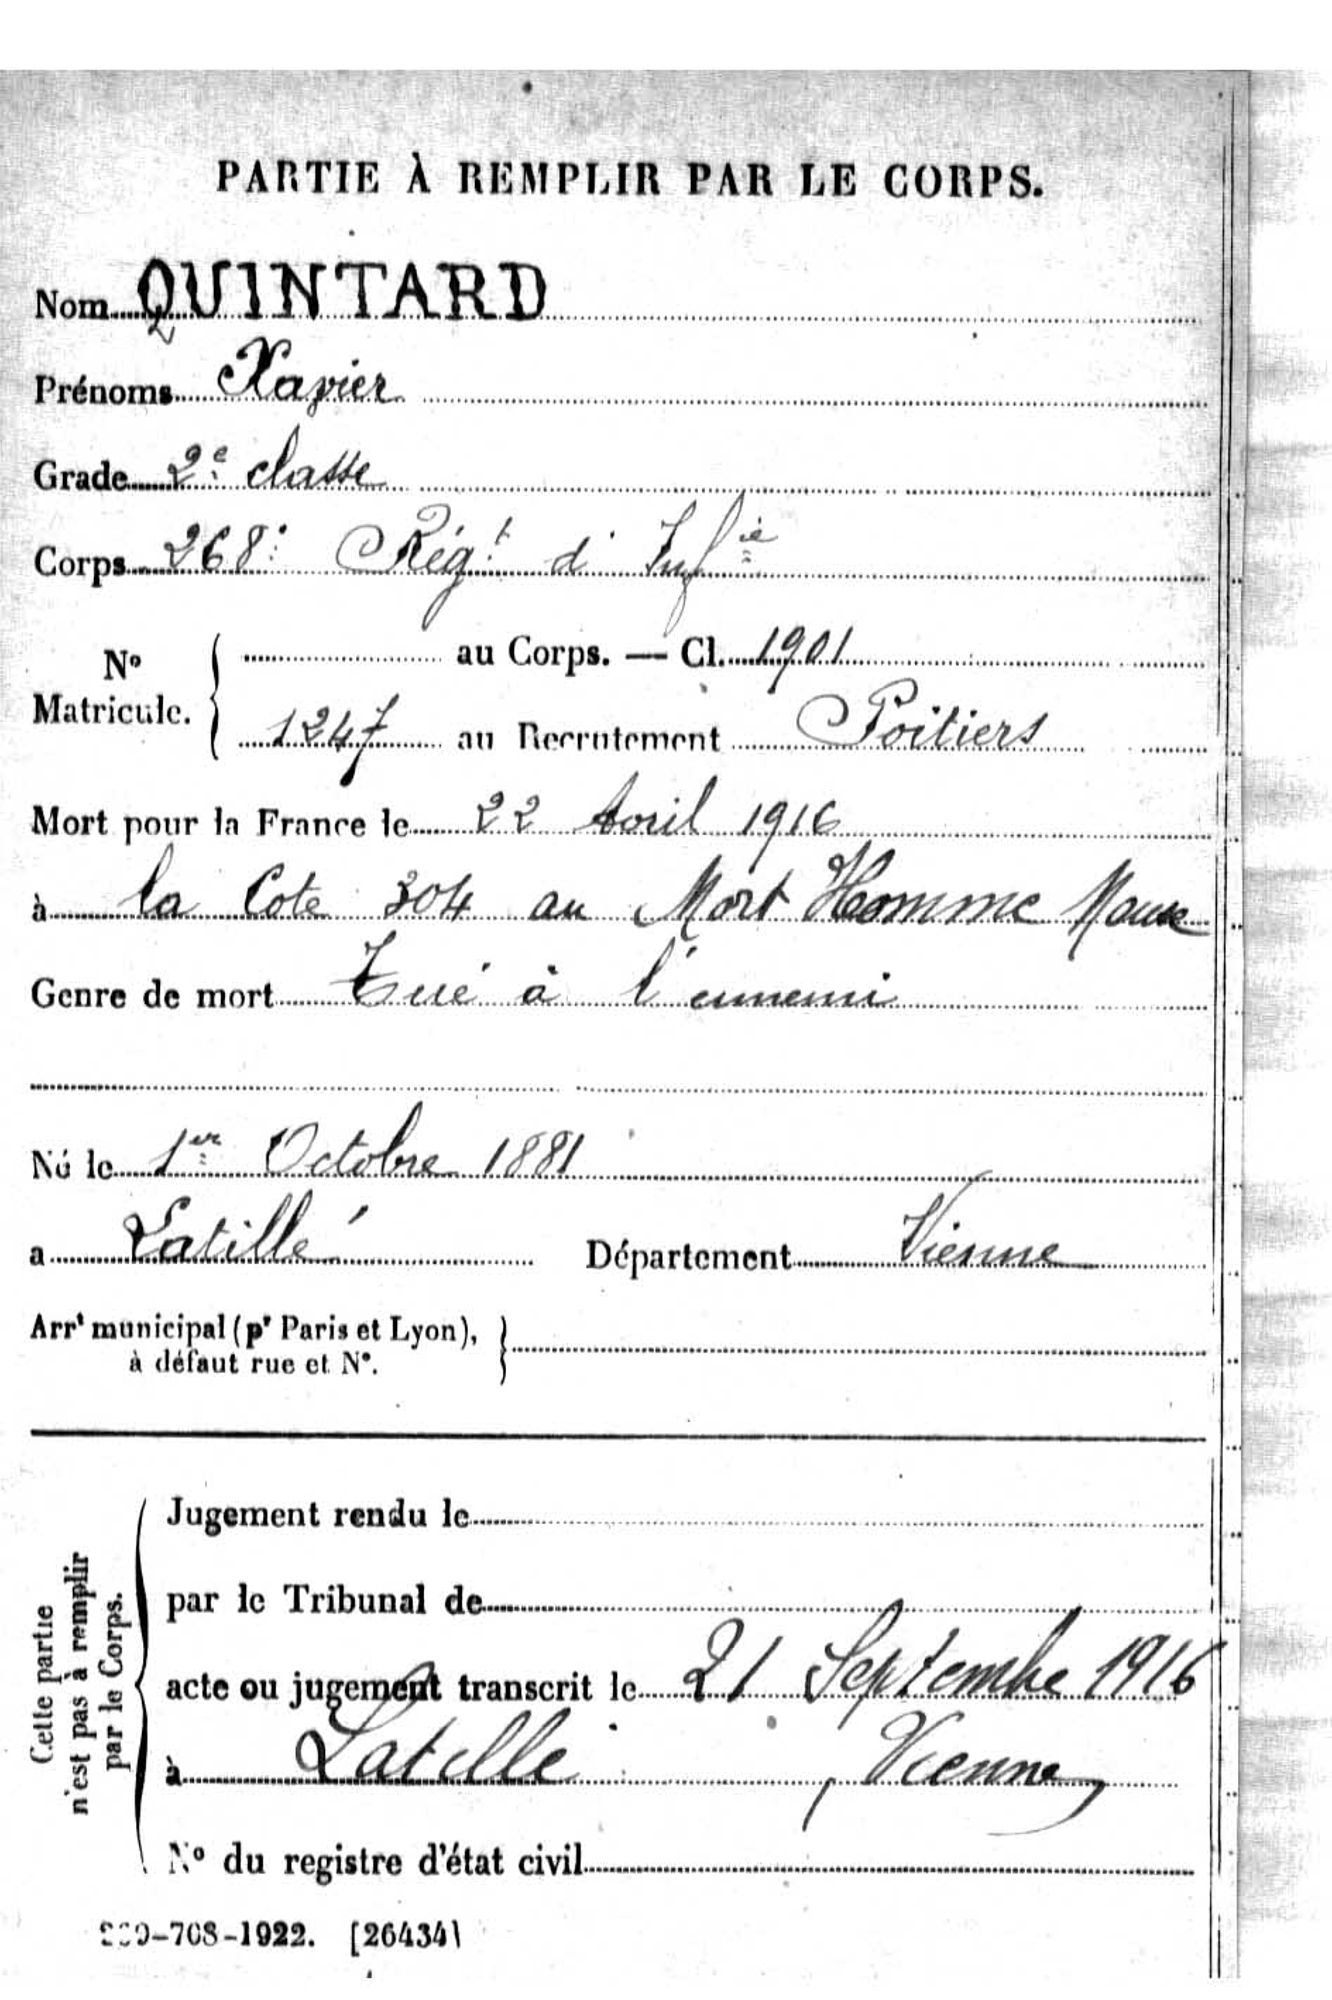 PARTIE À REMPLIR PAR LE CORPS.
Nom QUINTARD
Prénoms Xavier
Grade 2e classe
Corps 268e Régt d'Infie
No Matricule. { au Corps. — Cl. 1901
1247 au Recrutement Poitiers
Mort pour la France le 22 Avril 1916
à la Cote 304 au Mort Homme Meuse
Genre de mort Tué à l'ennemi
Né le 1er Octobre 1881
a Latillé Département Vienne
Arrt municipal (pr Paris et Lyon), }
à défaut rue et No.
Cette partie
n'est pas à remplir
par le Corps.
Jugement rendu le
par le Tribunal de
acte ou jugement transcrit le 21 Septembre 1916
à Latille, Vienne
No du registre d'état civil
-708-1922. [26434]